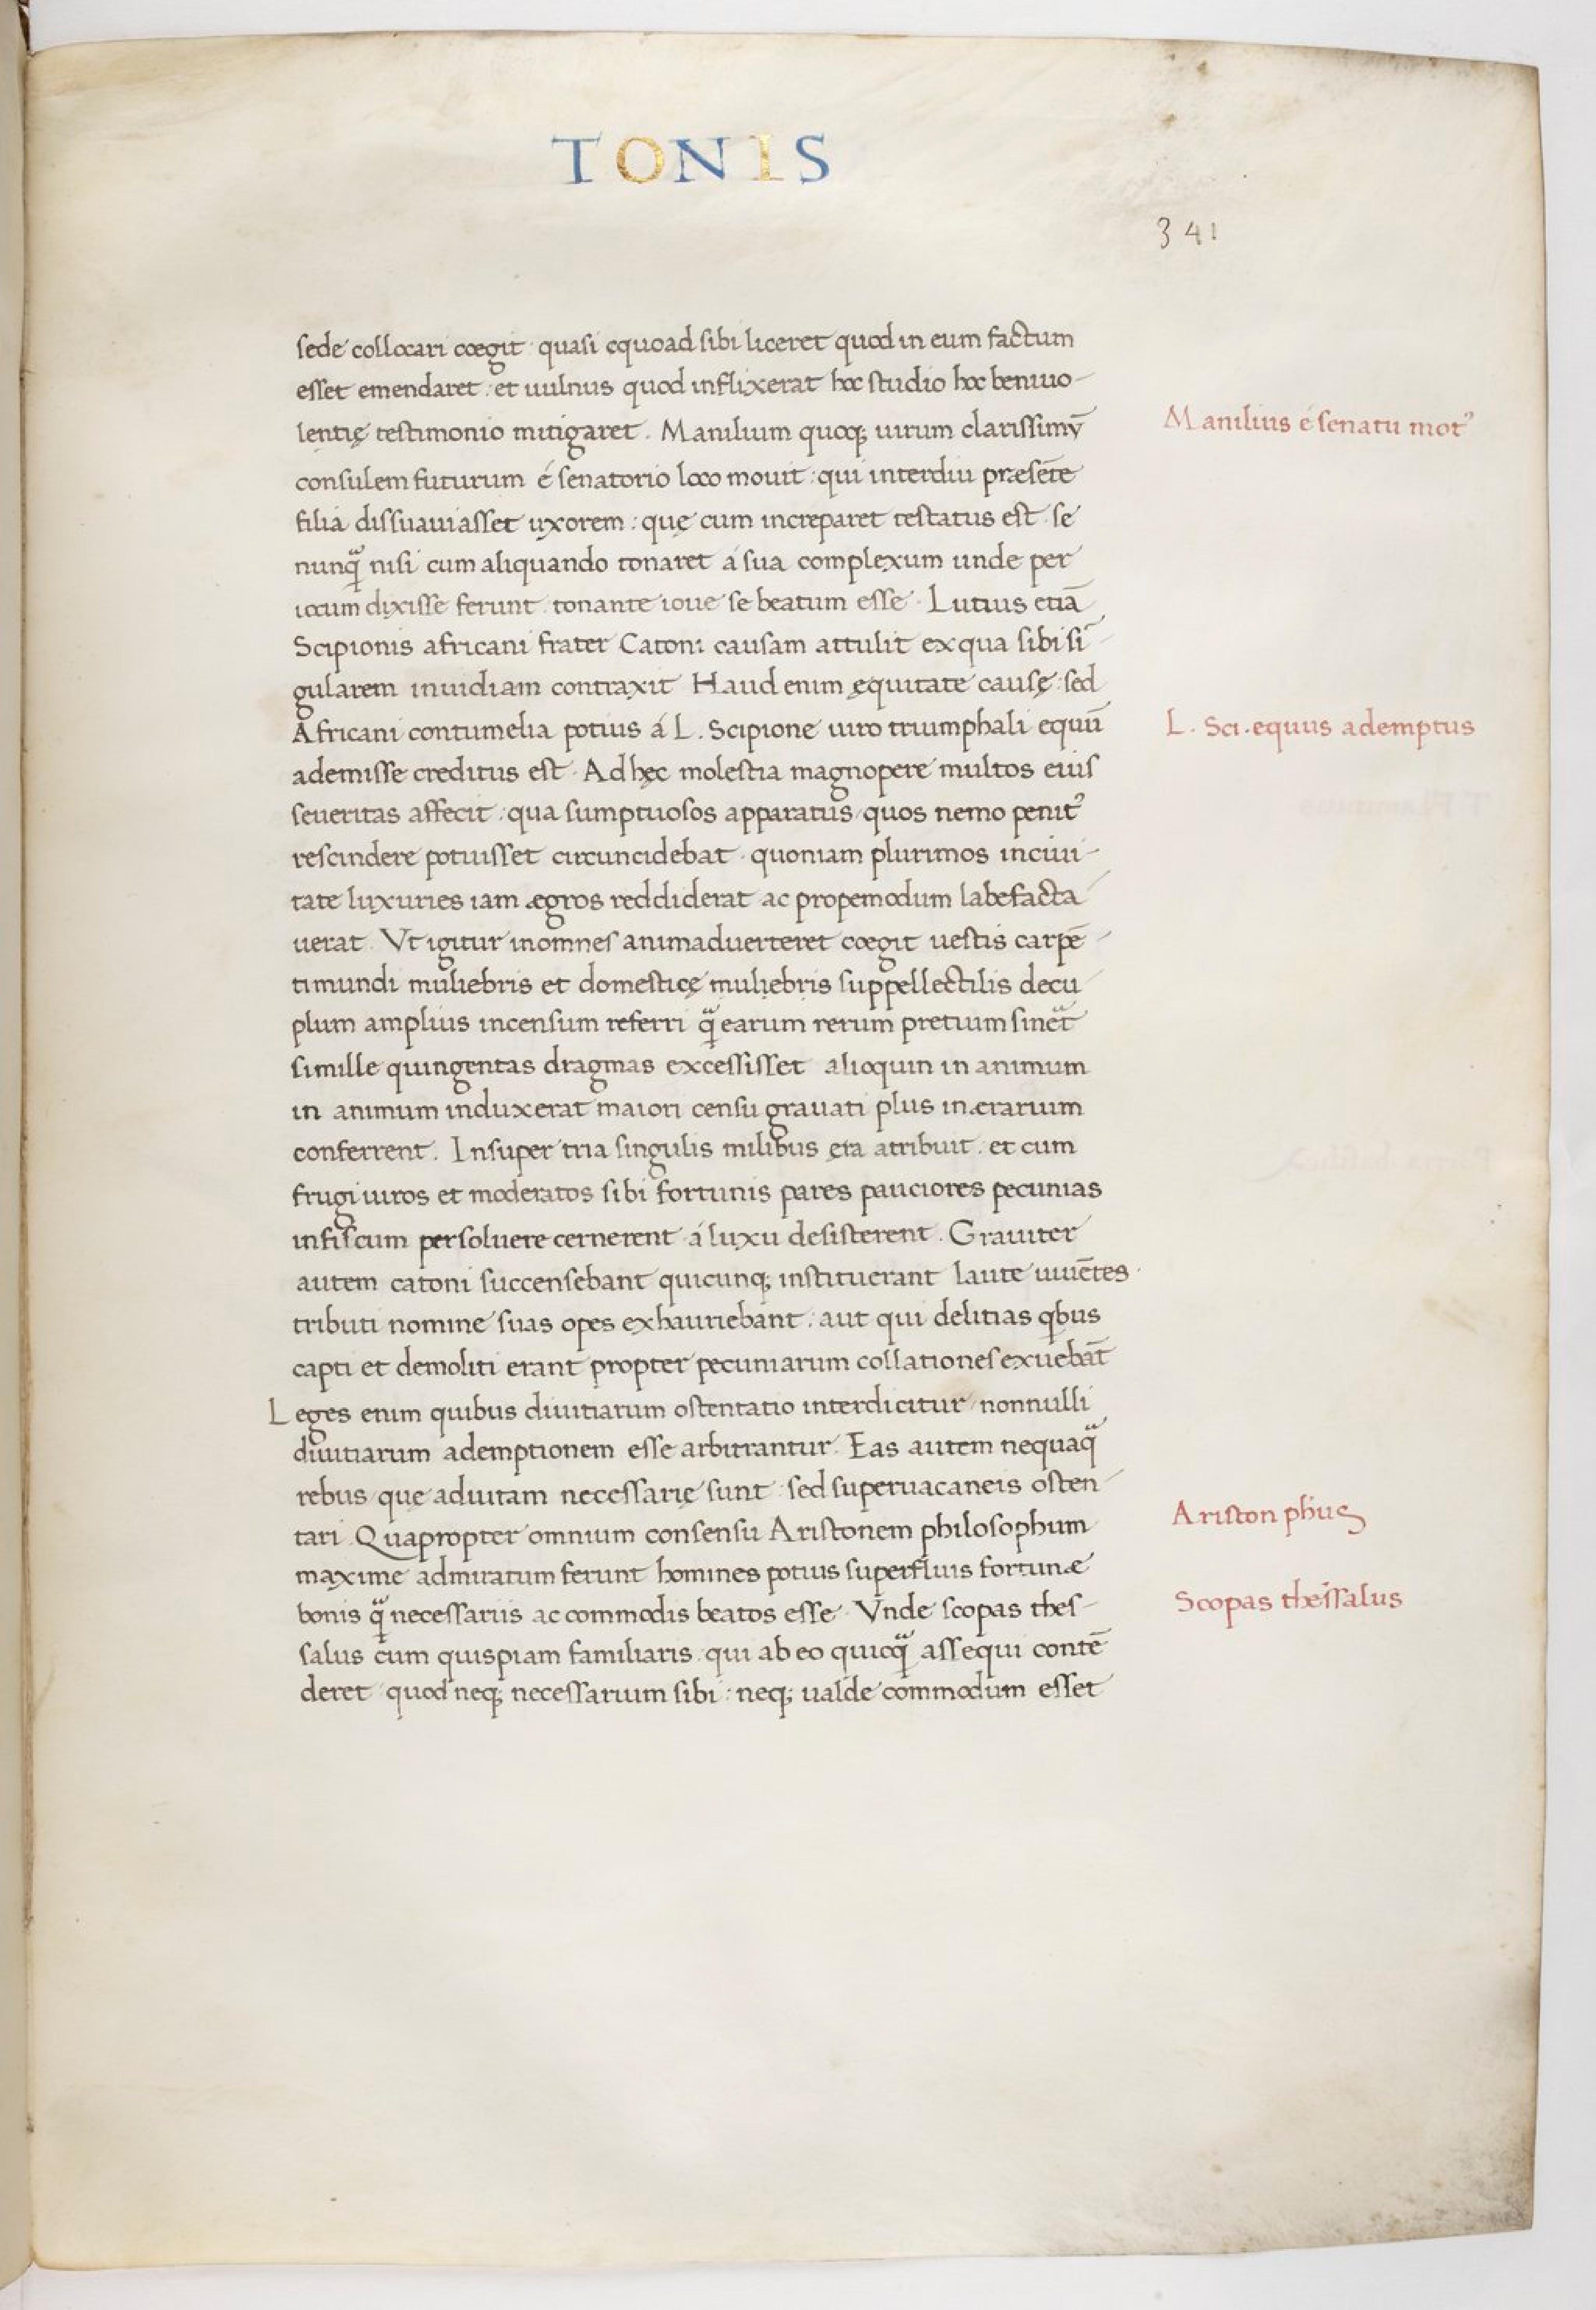 TONIS
341
sede collocari coegit · quasi equoad sibi liceret quod in eum factum
esset emendaret : et uulnus quod inflixerat hoc studio hoc beniuo-
lentię testimonio mitigaret . Manilium quoq; uirum clarissimū
Manilius é senatu mot᾽
consulem futurum é senatorio loco mouit : qui interdiu præsēte
filia dissuauiasset uxorem : quę cum increparet testatus est · se
nunq̃ nisi cum aliquando tonaret á sua complexum unde per
iocum dixisse ferunt · tonante ioue se beatum esse · Lutius etiā
Scipionis africani frater Catoni causam attulit ex qua sibi sī-
gularem inuidiam contraxit Haud enim ęquitate causę : sed
Africani contumelia potius á L. Scipione uiro triumphali equū
L. Sci. equus ademptus
ademisse creditus est · Ad hęc molestia magnopere multos eius
seueritas affecit : qua sumptuosos apparatus · quos nemo penit᾽
rescindere potuisset circuncidebat · quoniam plurimos in ciui-
tate luxuries iam ægros reddiderat ac propemodum labefacta-
uerat . Vt igitur in omnes animaduerteret coegit uestis carpē-
ti mundi muliebris et domesticę muliebris suppellectilis decu-
plum amplius in censum referri q̃ earum rerum pretium sineret
si mille quingentas dragmas excessisset alioquin in animum
in animum induxerat maiori censu grauati plus in ærarium
conferrent . Insuper tria singulis milibus ęra atribuit : et cum
frugi uiros et moderatos sibi fortunis pares pauciores pecunias
in fiscum persoluere cernerent · á luxu desisterent . Grauiter
autem catoni succensebant quicunq; instituerant laute uiuētes ·
tributi nomine suas opes exhauriebant : aut qui delitias qbus
capti et demoliti erant propter pecuniarum collationes exuebāt
Leges enim quibus diuitiarum ostentatio interdicitur · nonnulli
diuitiarum ademptionem esse arbitrantur . Eas autem nequaq̃
rebus · que ad uitam necessarię sunt : sed superuacaneis osten-
tari . Quapropter omnium consensu Aristonem philosophum
Ariston phus
maxime admiratum ferunt homines potius superfluis fortunæ
bonis q̃ necessariis ac commodis beatos esse · Vnde scopas thes-
Scopas thessalus
salus cum quispiam familiaris · qui ab eo quicq̃ assequi contē-
deret · quod neq; necessarium sibi : neq; ualde commodum esset